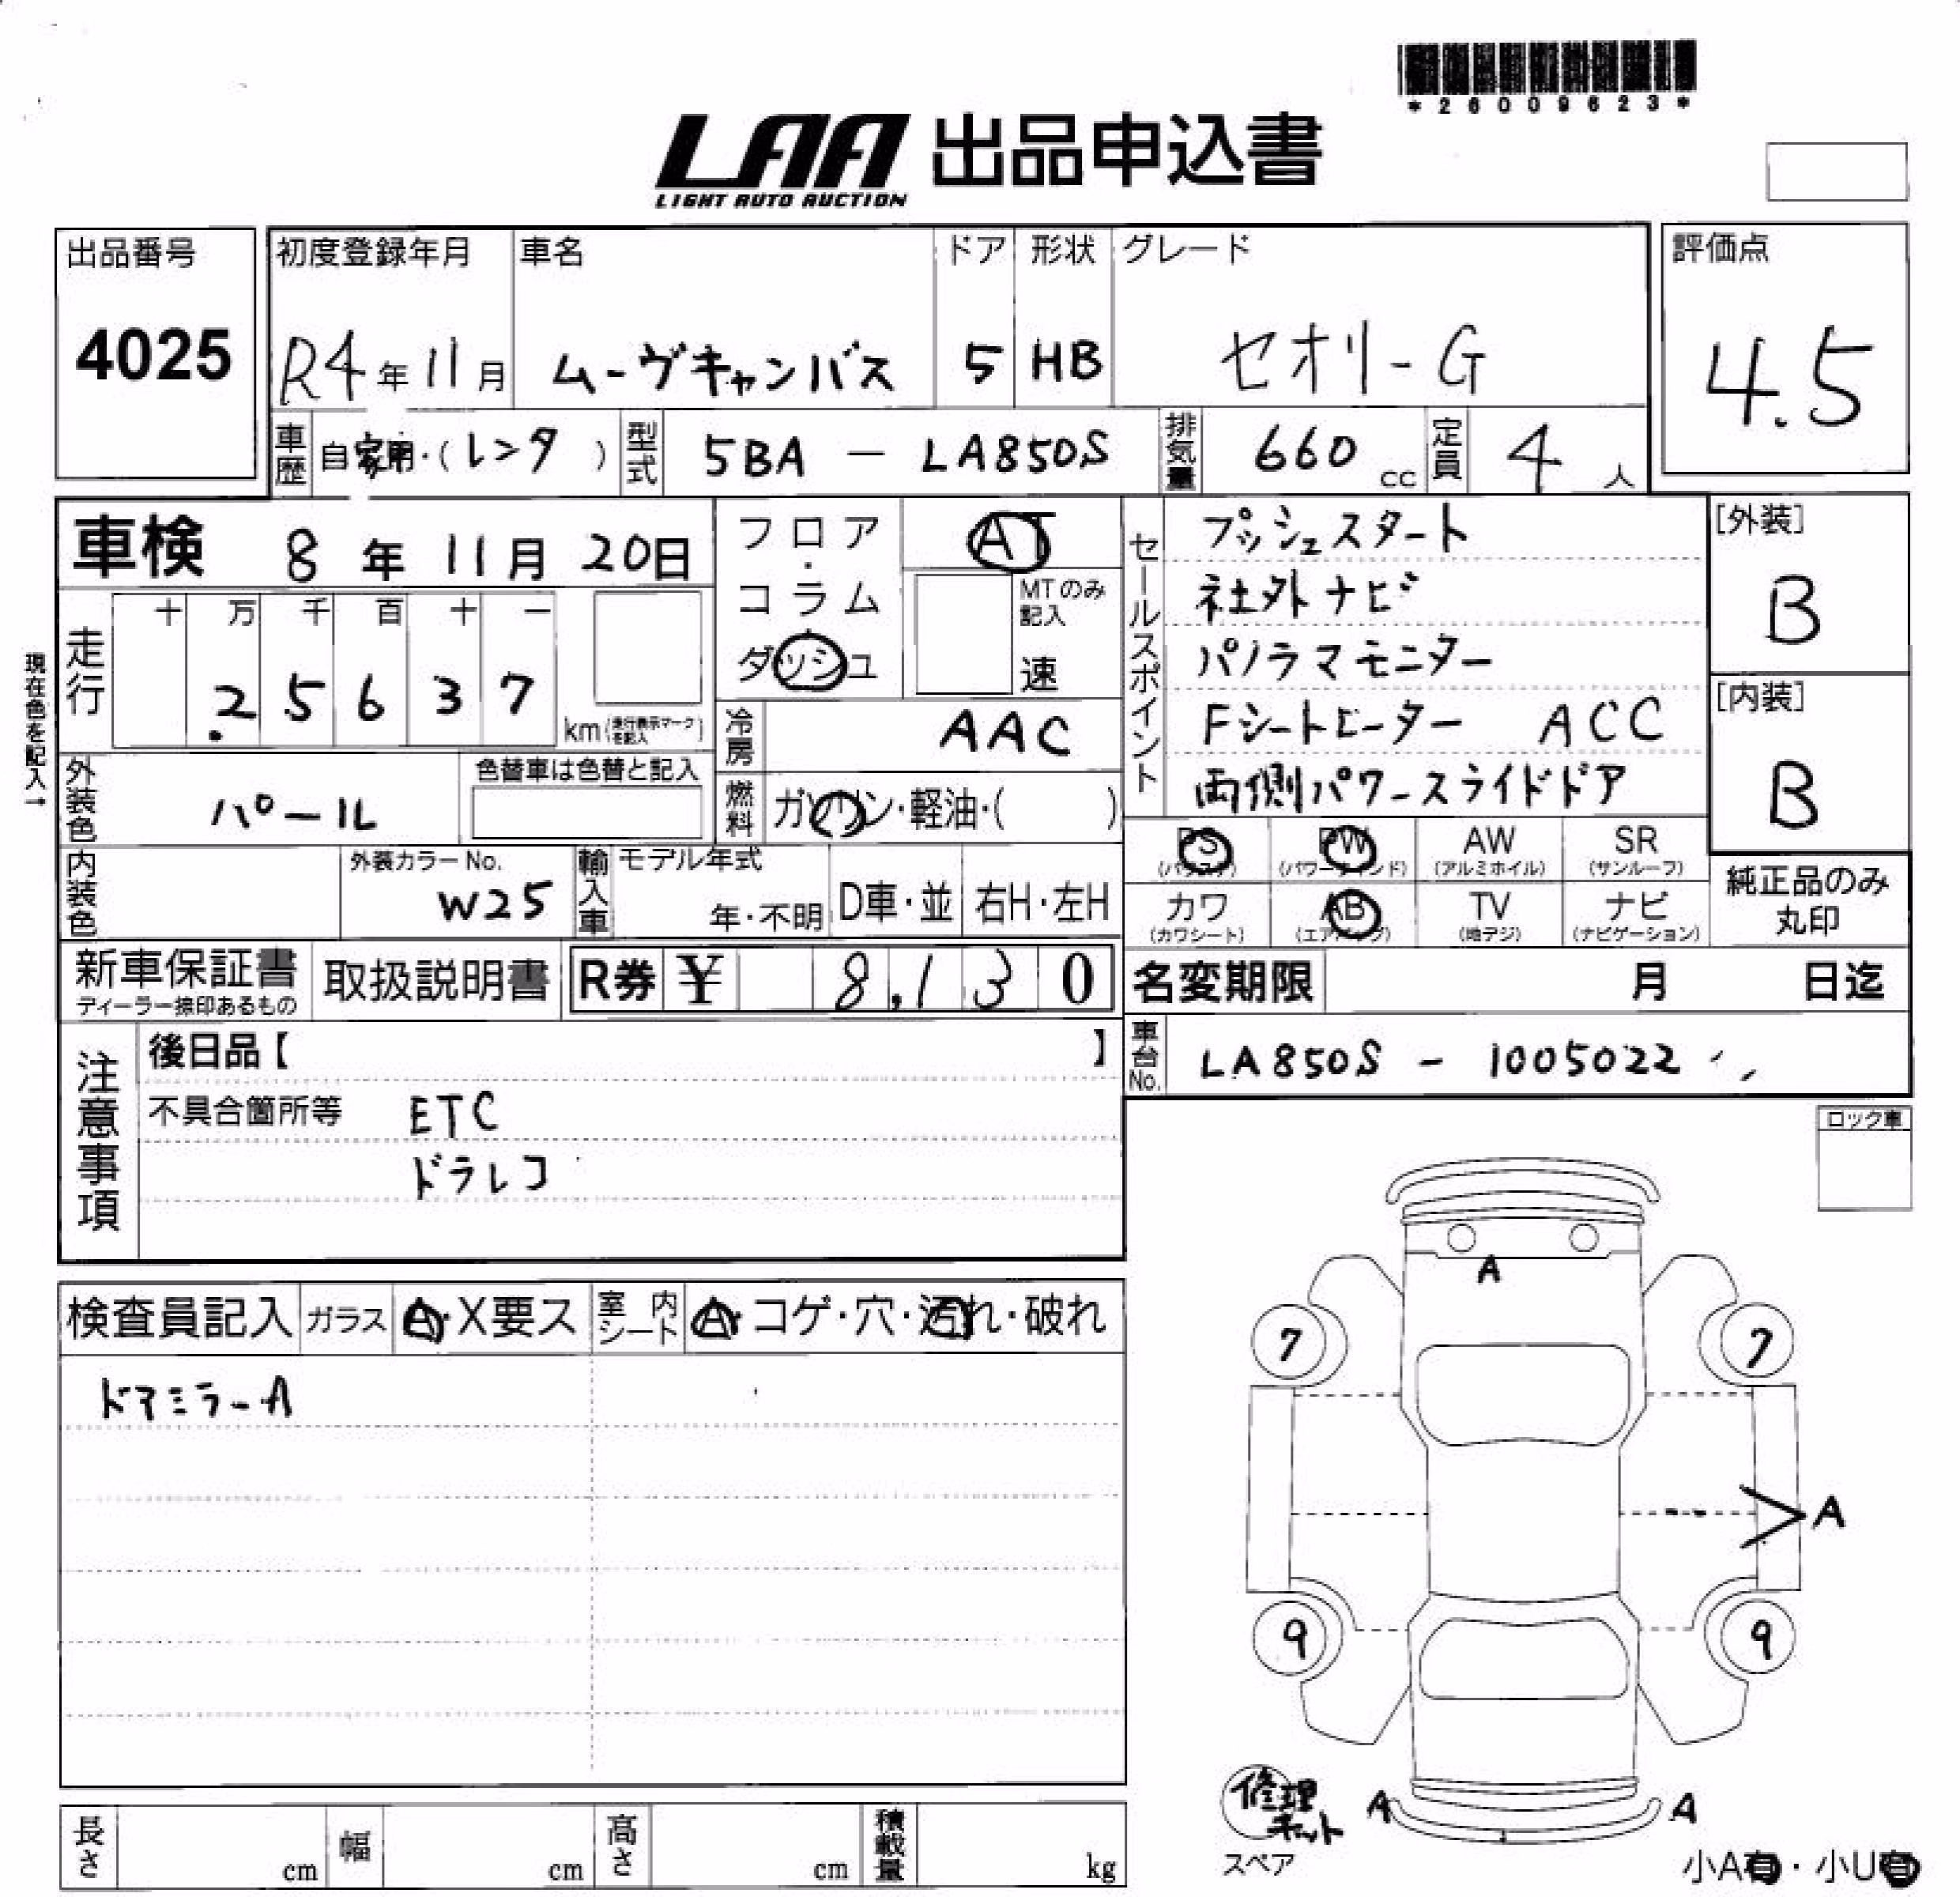 *26009623*
LAA 出品申込書
LIGHT AUTO AUCTION
出品番号 4025
初度登録年月 R4年11月
車名 ムーヴキャンバス
ドア 5
形状 HB
グレード セオリーG
評価点 4.5
車歴 自家用・(レンタ)
型式 5BA - LA850S
排気量 660 cc
定員 4人
車検 8年11月20日
現在色を記入→
走行 十 万 千 百 十 一
2 5 6 3 7 km(走行表示マークを記入)
フロア・コラム・ダッシュ
AT
MTのみ記入
速
冷房 AAC
燃料 ガソリン・軽油・( )
外装色 パール
色替車は色替と記入
内装色
外装カラーNo. W25
輸入車 モデル年式 年・不明 D車・並 右H・左H
セールスポイント
プッシュスタート
社外ナビ
パノラマモニター
Fシートヒーター ACC
両側パワースライドドア
[外装] B
[内装] B
PS PW AW SR
(パワステ) (パワーウィンド) (アルミホイル) (サンルーフ)
カワ AB TV ナビ
(カワシート) (エアバッグ) (地デジ) (ナビゲーション)
純正品のみ丸印
新車保証書
ディーラー捺印あるもの
取扱説明書
R券 ¥ 8,130
名変期限 月 日迄
車台No. LA850S - 1005022
注意事項
後日品【 】
不具合箇所等 ETC
ドラレコ
ロック車
検査員記入 ガラス A・X要ス 室内シート A・コゲ・穴・汚れ・破れ
ドアミラーA
A
7 7
A
9 9
修理キット
スペア
A A
小A有・小U有
長さ cm 幅 cm 高さ cm 積載量 kg